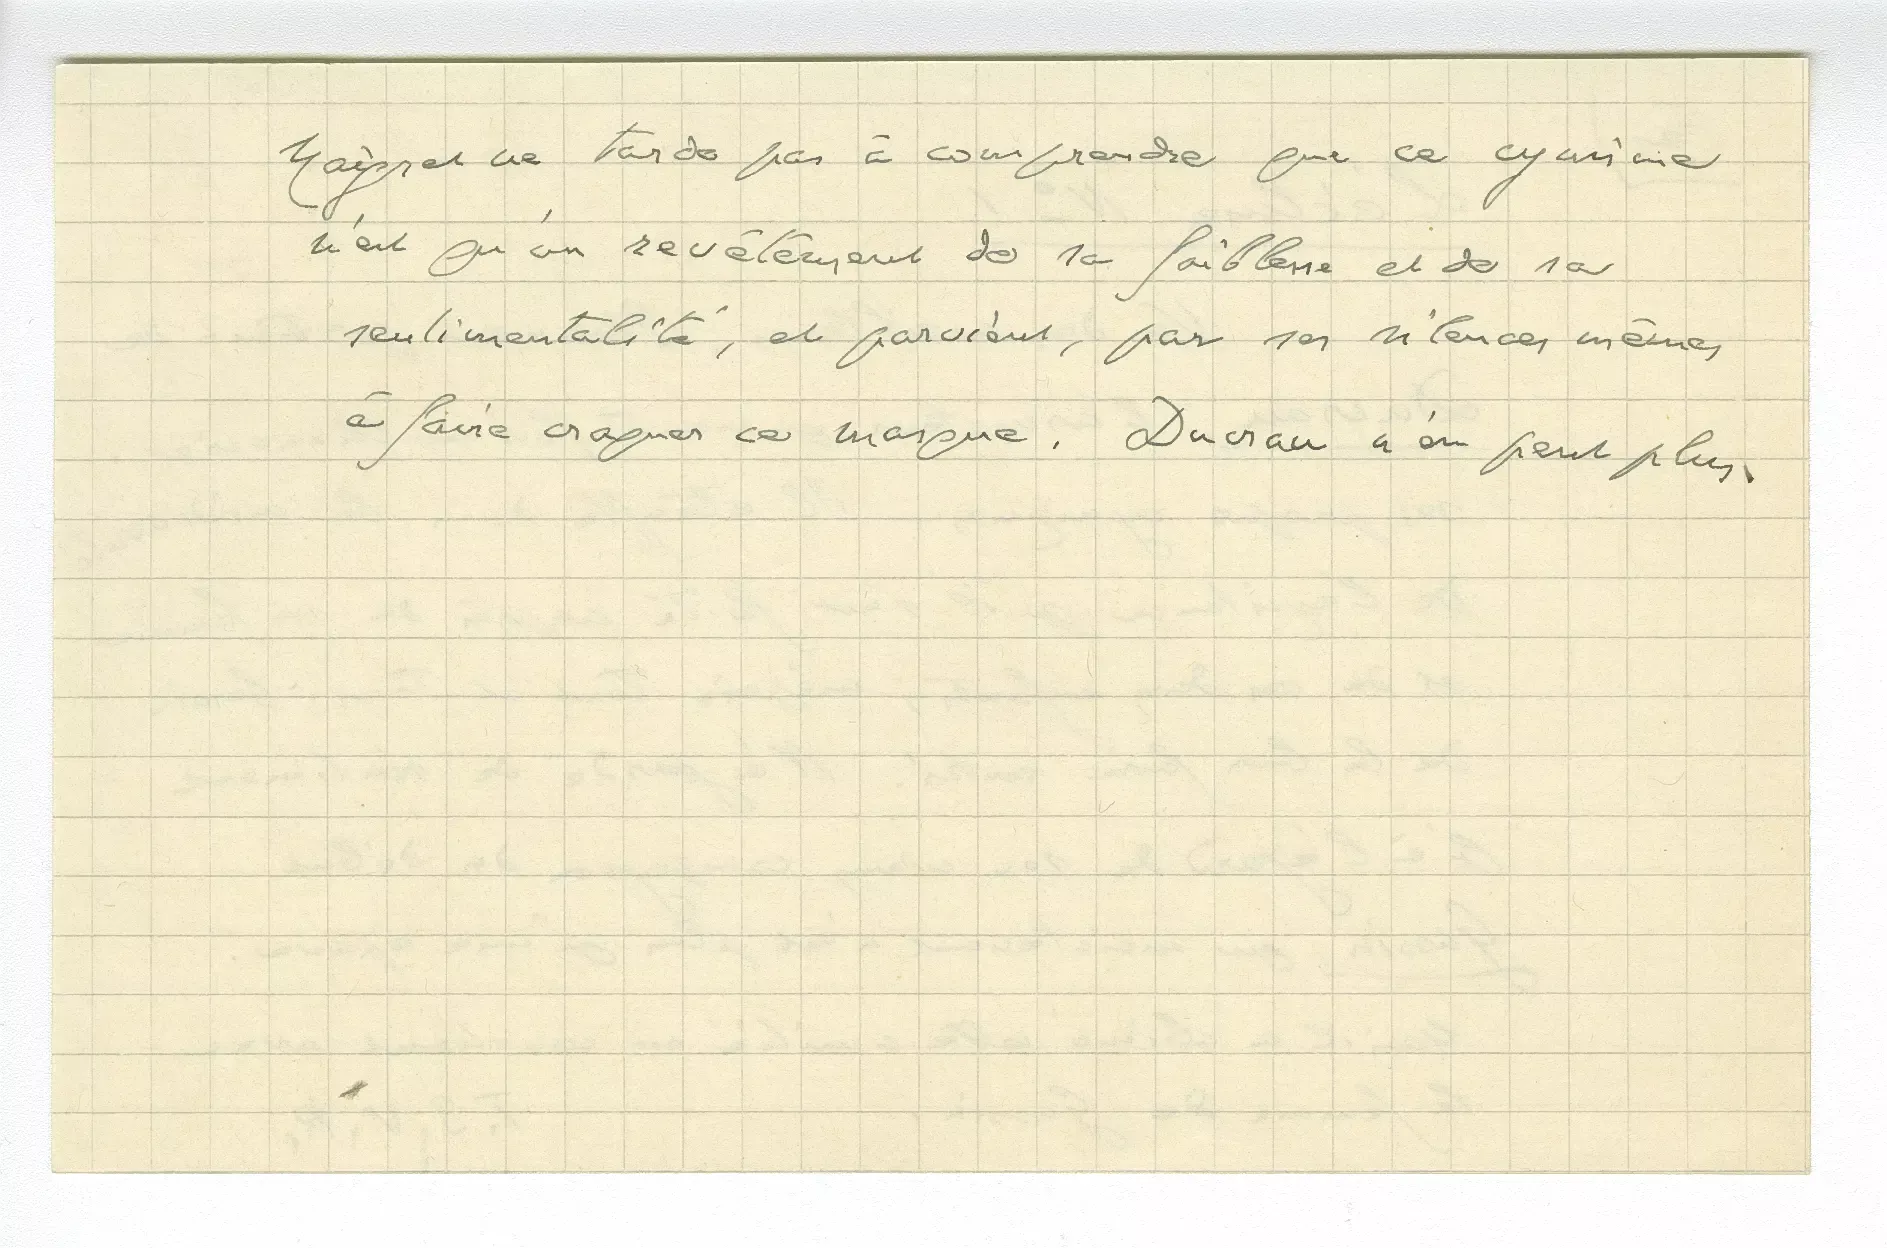 Maigret ne tarde pas à comprendre que ce cynisme
n'est qu'un revêtement de sa faiblesse et de sa
sentimentalité, et parvient, par ses silences mêmes
à faire craquer ce masque. Ducrau n'en peut plus.